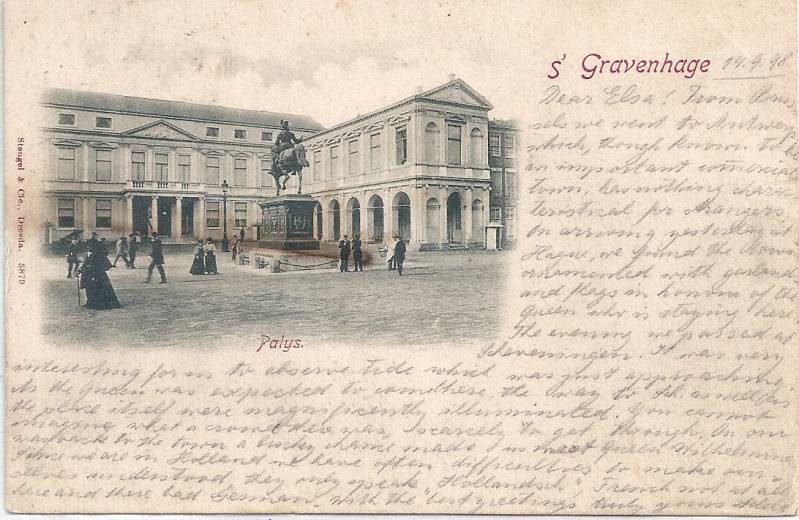 s' Gravenhage 14.9.98.
Dear Elsa! From Brus-
sels we went to Antwerp
which, though known to be
an important comercial
town, has nothing charac
teristical for strangers.
On arriving yesterday at
Hague, we found the town
ornamented with garland
and flags in honour of the
queen who is staying here
The evening we passed at
Scheveningen. It was very
interesting for us to observe tide which was just approaching.
As the Queen was expected to come there, the way to Sch. as well as
the place itself were magnificently illuminated. You cannot
imagine what a crowd there was, scarcely to get through. On our
way back to the town a lucky chance made us meet Queen Wilhelmine
Since we are in Holland we have often difficulties to make our-
selves understood, they only speak "Hollandsch" French not at all
here and there bad German. With the best greetings truly yours
Palys.
Stengel & Cie., Dresda. 5879